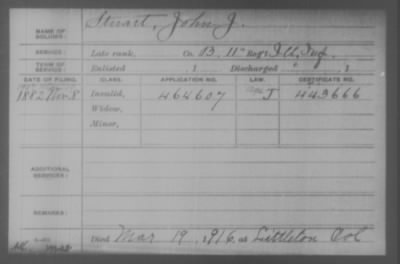 NAME OF SOLDIER: Stuart, John J.
SERVICE: Late rank, Co. B, 11" Reg't Ill, Inf.
TERM OF SERVICE: Enlisted , 1 Discharged , 1
DATE OF FILING. CLASS. APPLICATION NO. LAW. CERTIFICATE NO.
1882 Nov 8 Invalid, 464607 J 443666
Widow,
Minor,
ADDITIONAL SERVICES:
REMARKS:
Died Mar 19, 1916, at Littleton Col